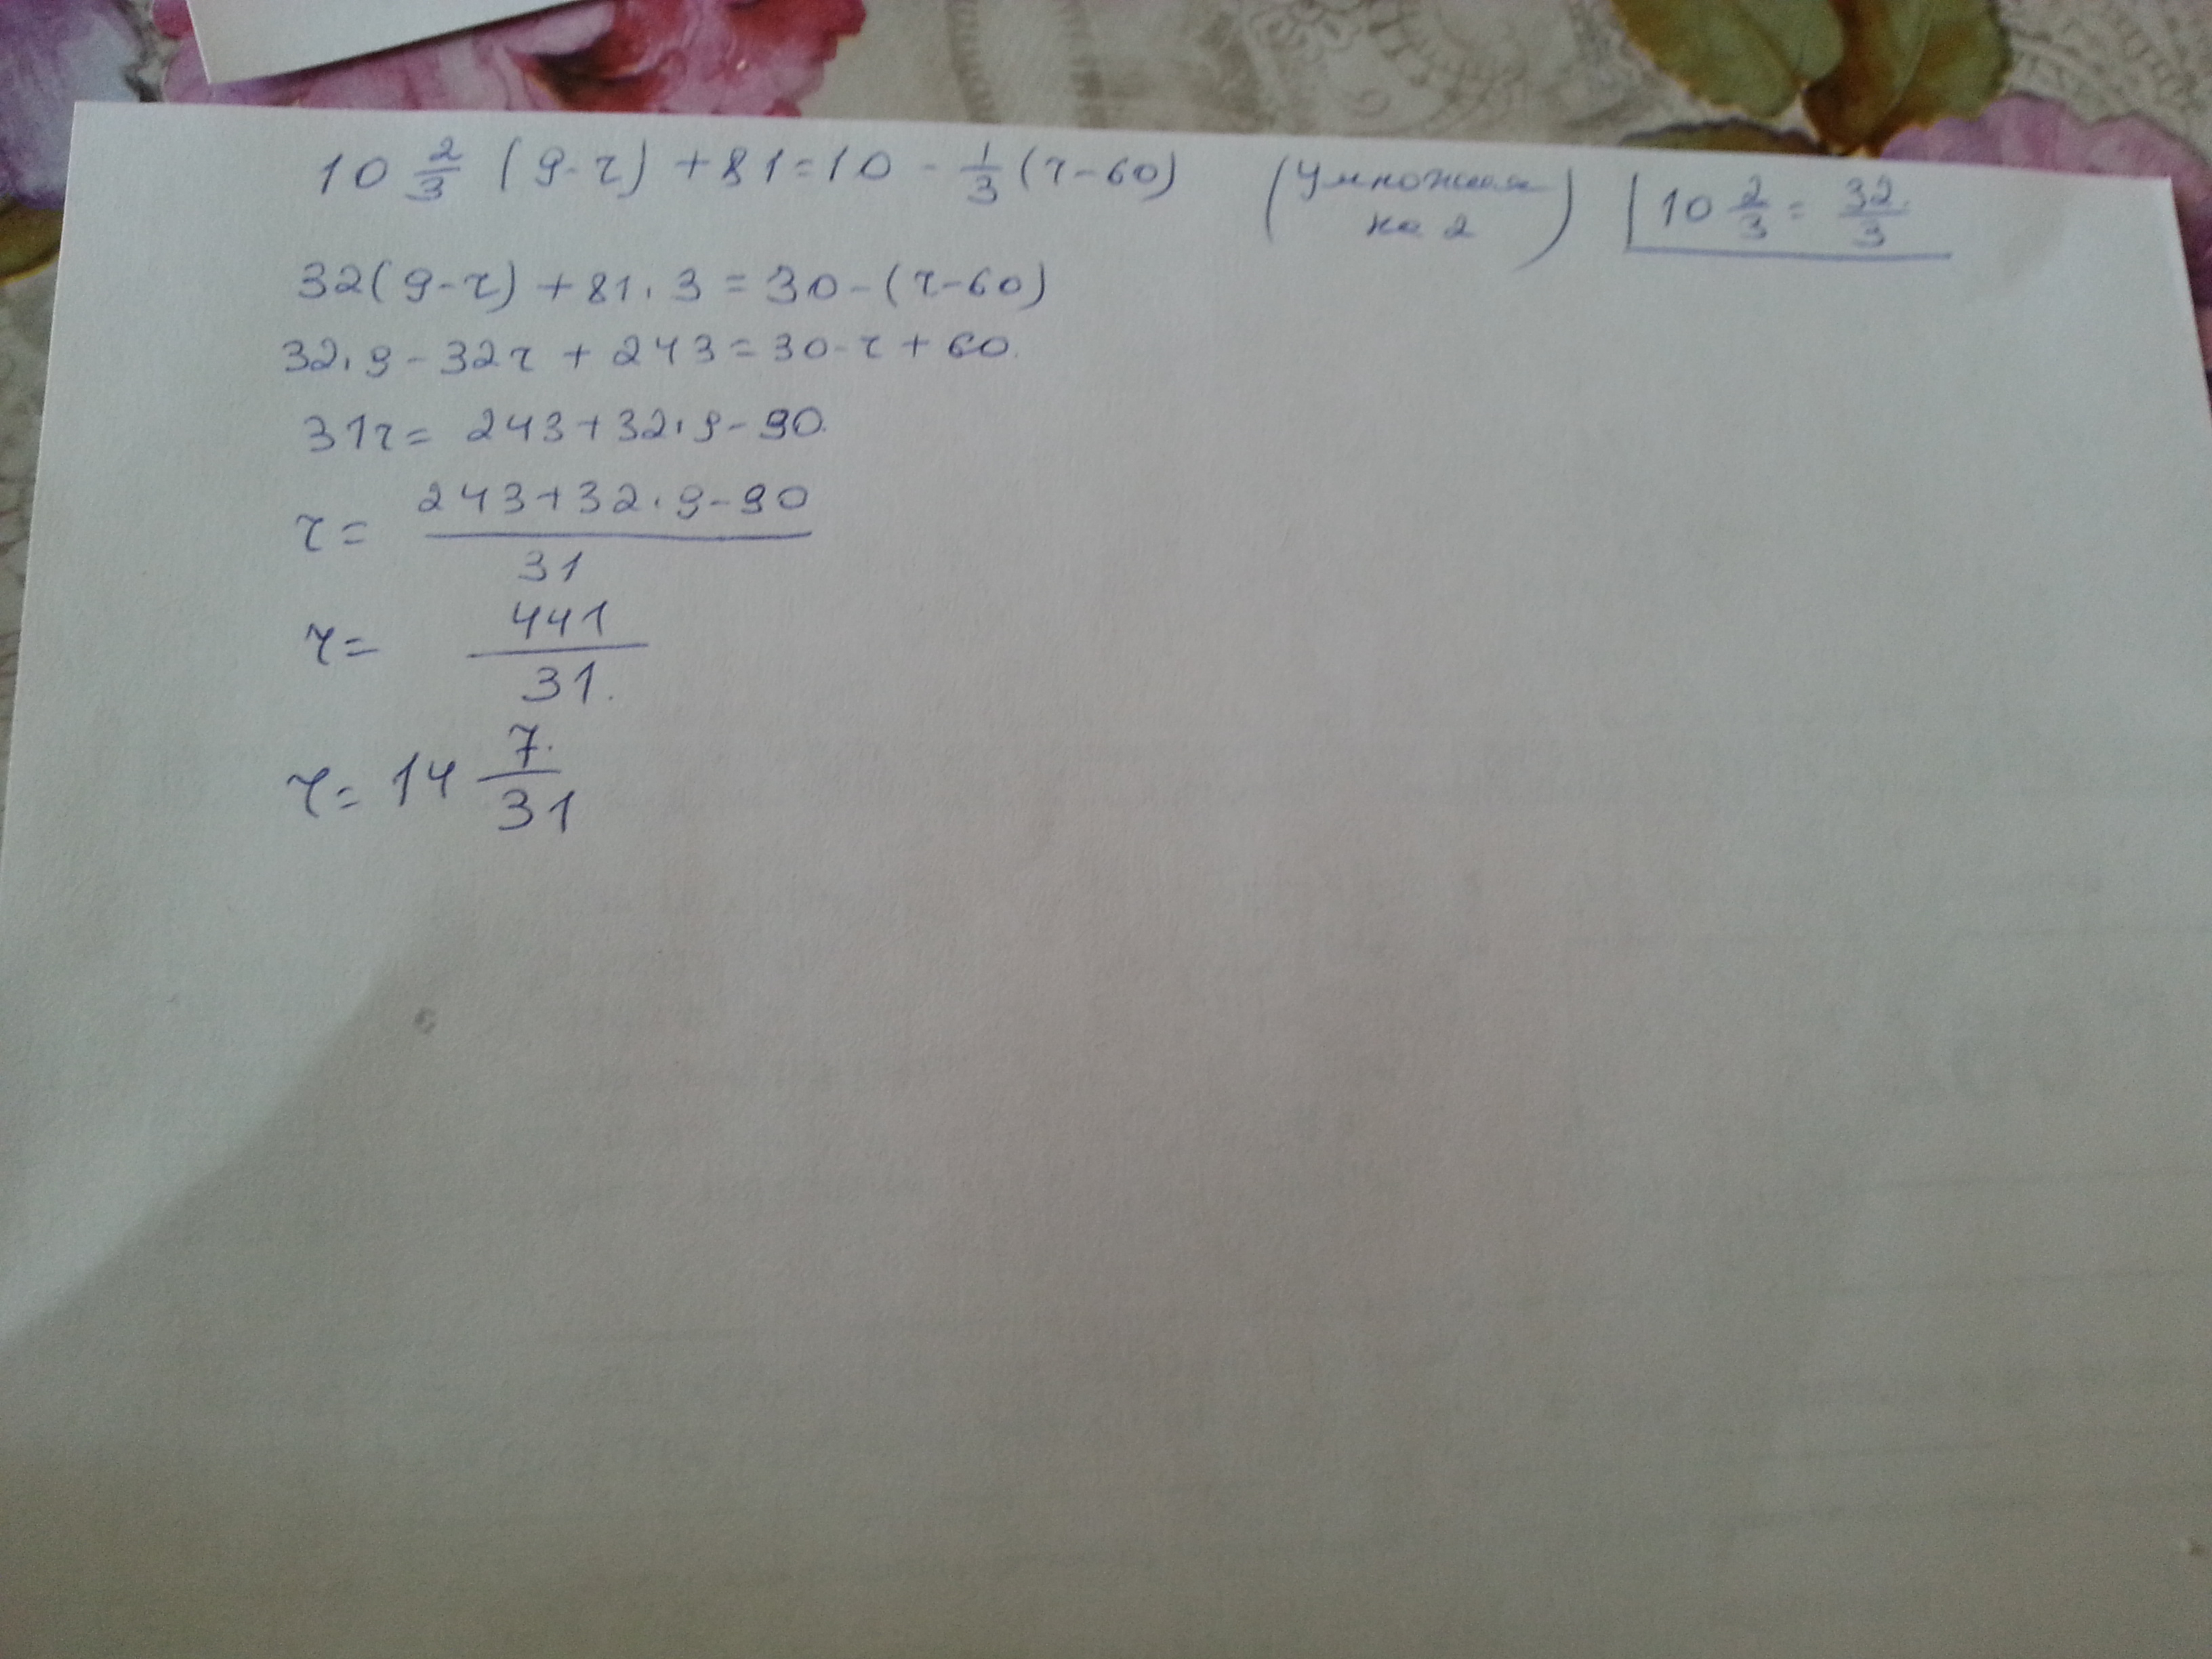 10 2/3 (9-r) + 81 = 10 - 1/3 (r-60) (Умножим на 2) | 10 2/3 = 32/3
32(9-r) + 81·3 = 30-(r-60)
32·9-32r + 243 = 30-r+60.
31r = 243+32·9-90.
r = 243+32·9-90 / 31
r = 441 / 31.
r = 14 7/31